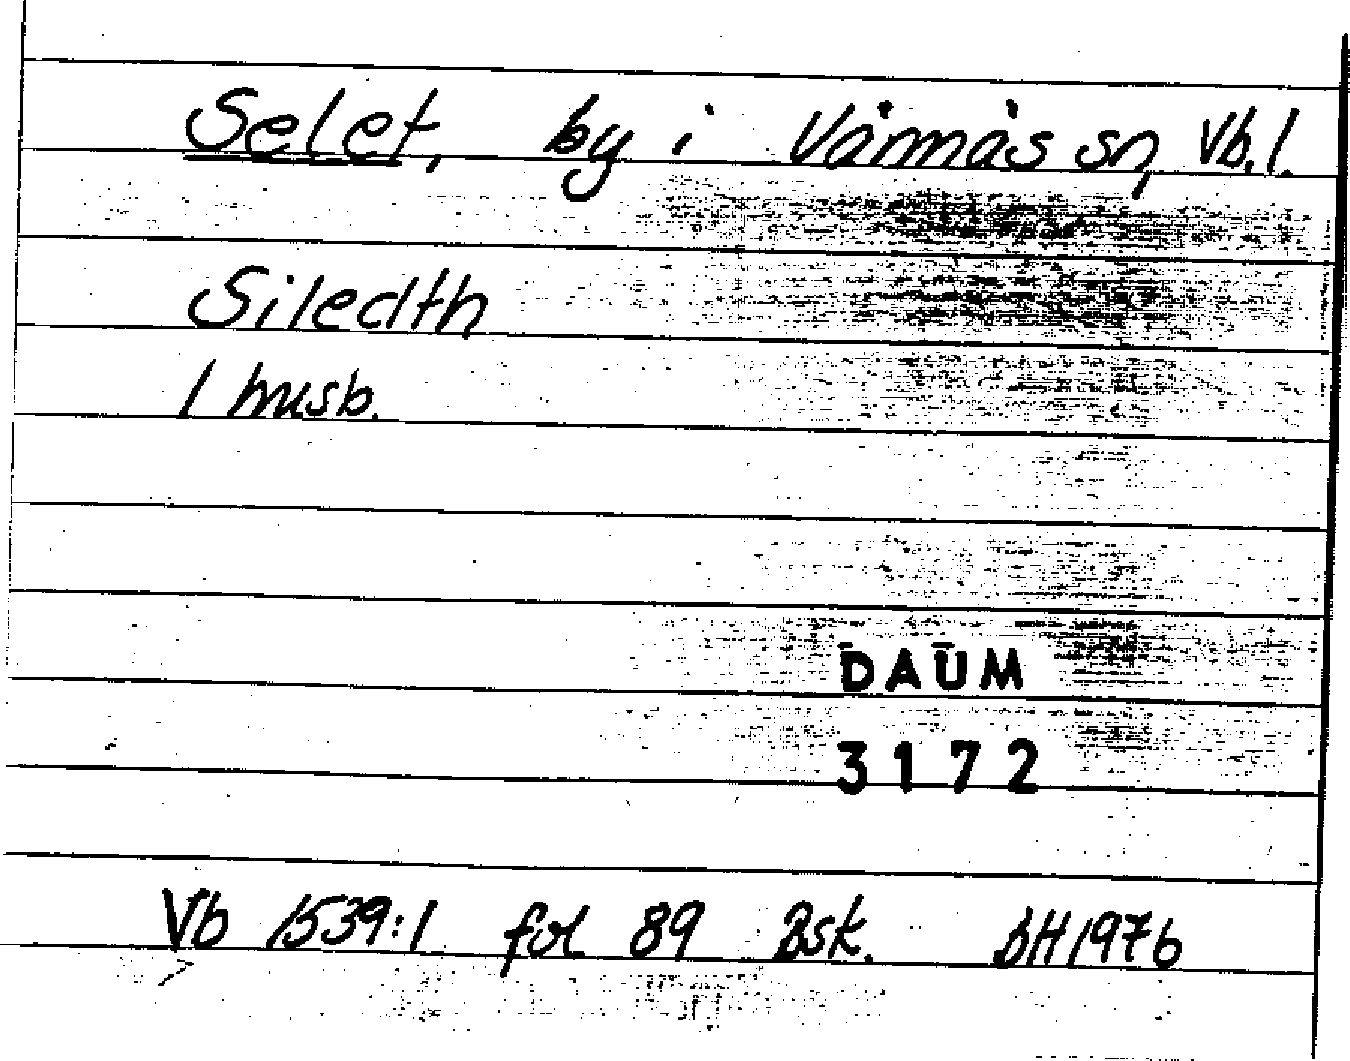 Selet, by i Vännäs sn, Vb. l.
Siledth
1 husb.
DAUM
3172
Vb 1539:1 fol 89 Bsk. BH 1976